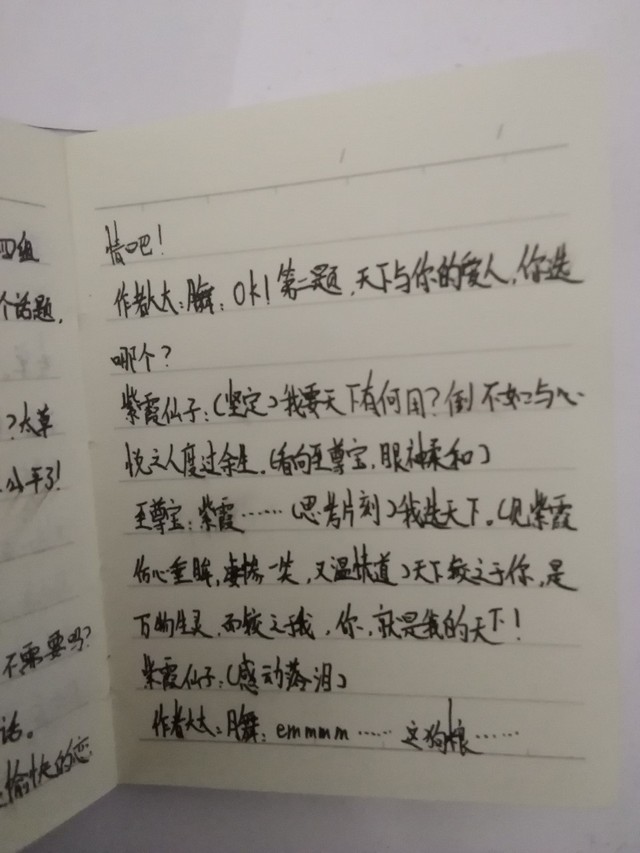 四组
个话题，
？太草
公平了！
不需要吗？
话。
愉快的恋
情吧！
作者大大：月舞：OK！第二题，天下与你的爱人，你选
哪个？
紫霞仙子：（坚定）我要天下有何用？倒不如与心
悦之人度过余生。（看向至尊宝，眼神柔和）
至尊宝：紫霞……（思考片刻）我选天下。（见紫霞
伤心垂眸，凄惨一笑，又温情道）天下较之于你，是
万物生灵，而较之于我，你，就是我的天下！
紫霞仙子：（感动落泪）
作者大大：月舞：emmmm……这狗粮……